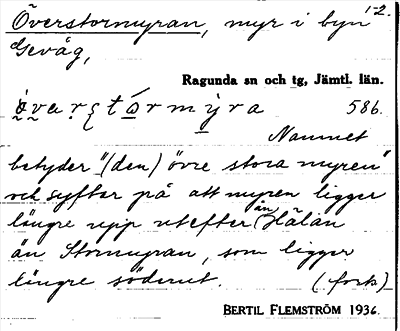 1-2.
Överstormyran, myr i byn
Gevåg,
Ragunda sn och tg, Jämtl. län.
586.
Namnet
betyder "(den) övre stora myren"
och syftar på att myren ligger
längre upp utefter ån Hålån
än Stormyran, som ligger
längre söderut. (forts.)
BERTIL FLEMSTRÖM 1936.